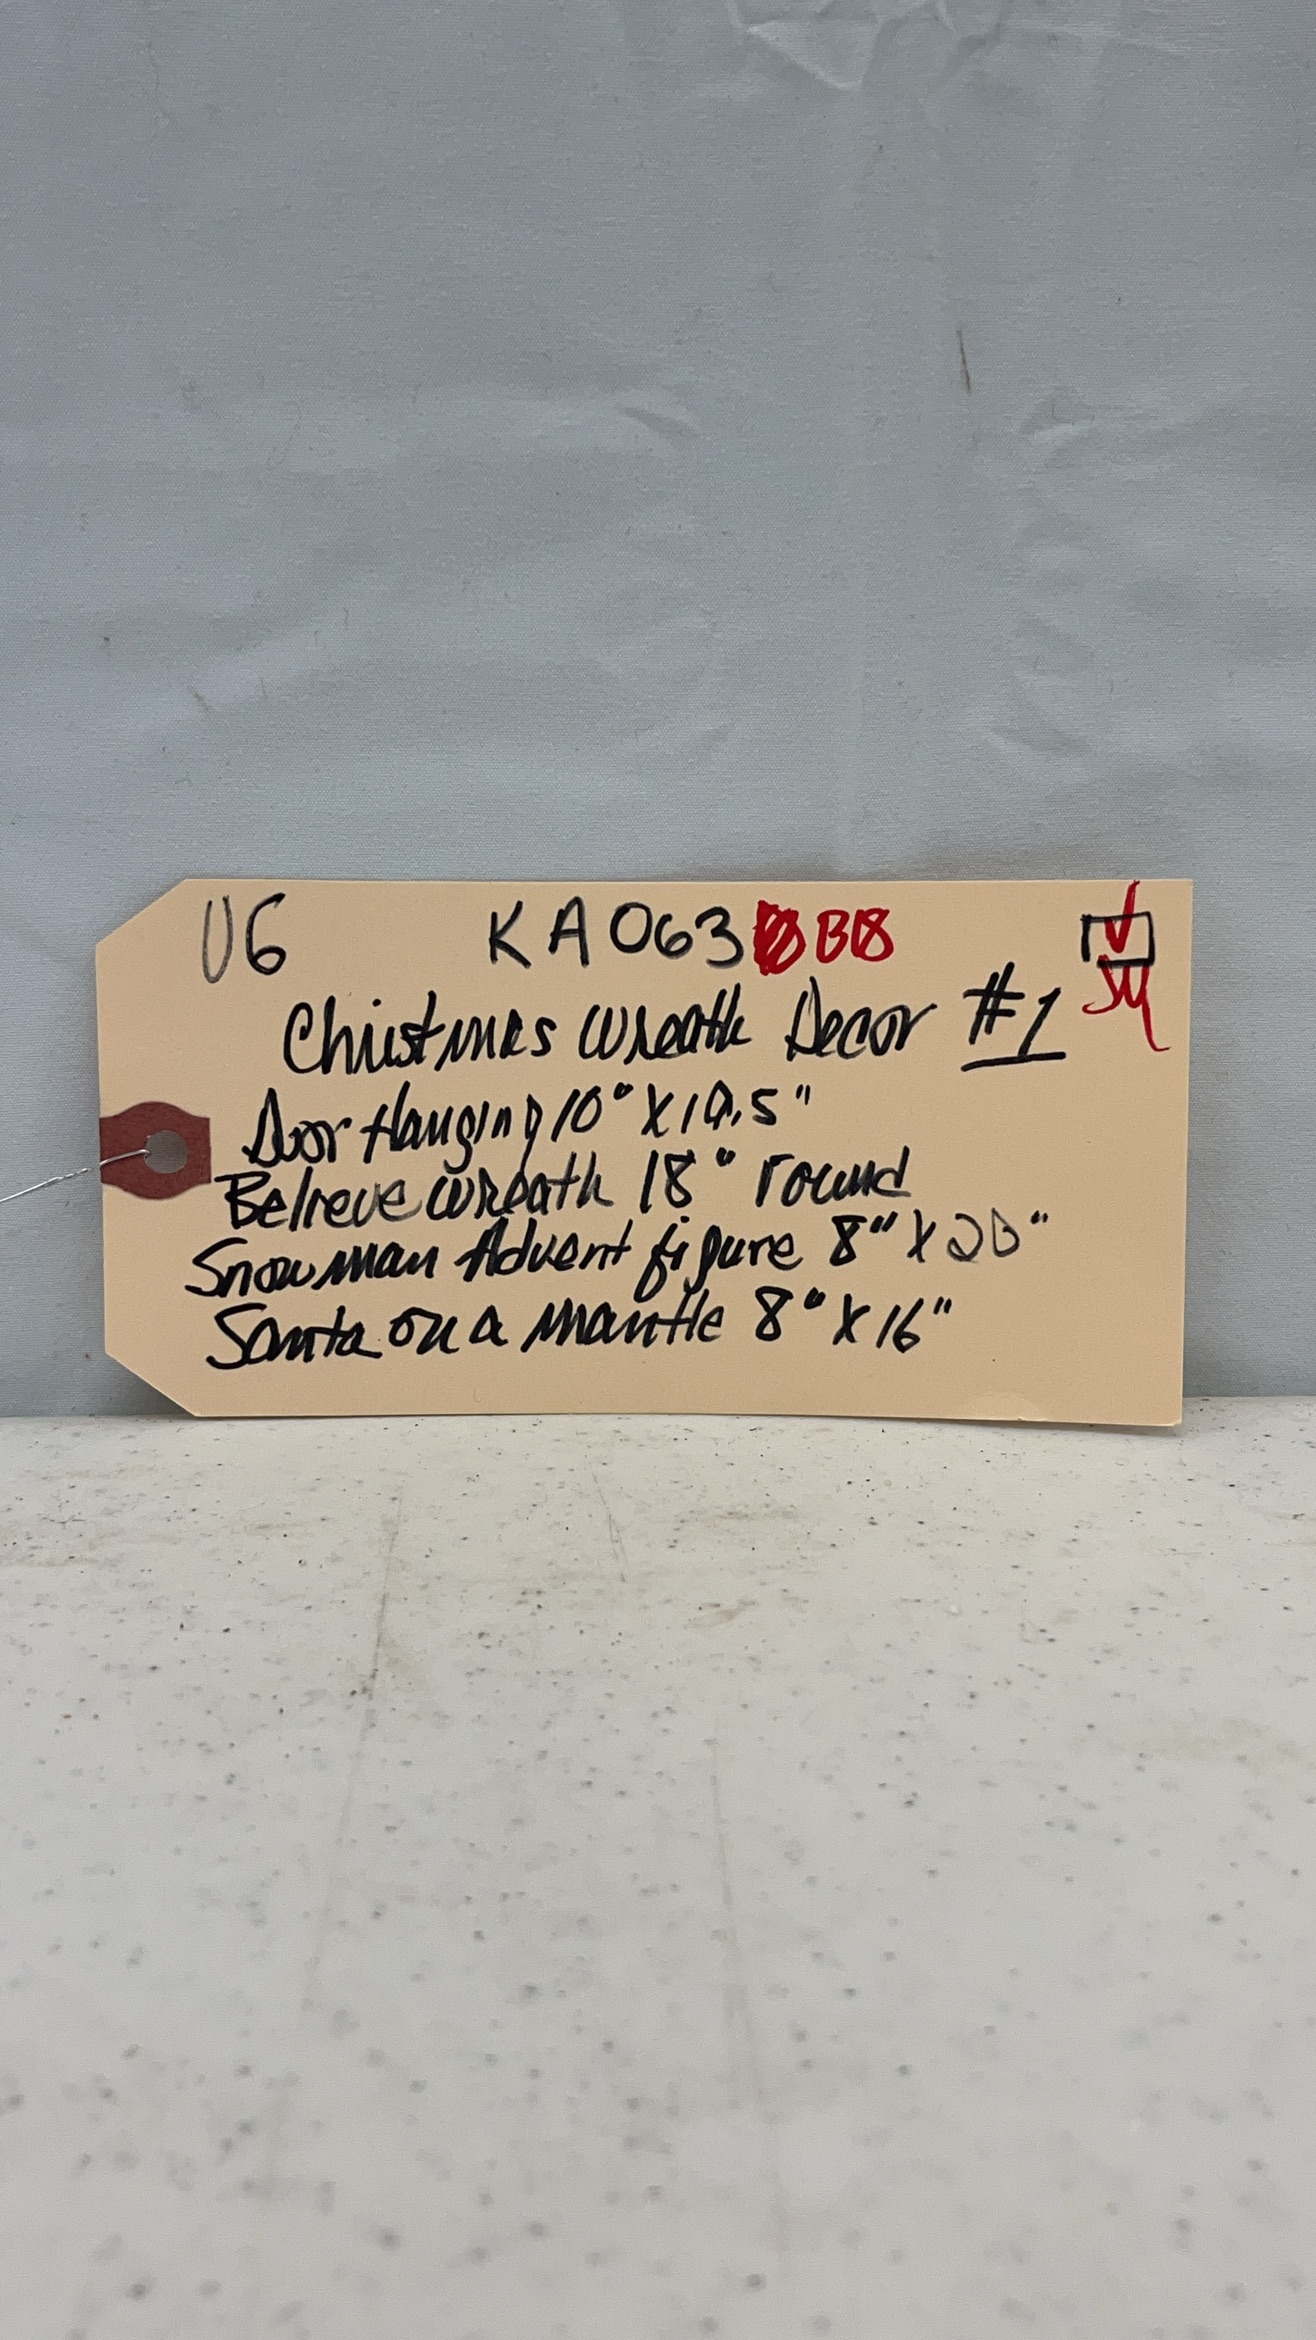 U6 KA063 BB
Christmas Wreath Decor #1
Door Hanging 10" X 19.5"
Believe Wreath 18" round
Snowman Advent figure 8" X 20"
Santa on a mantle 8" X 16"